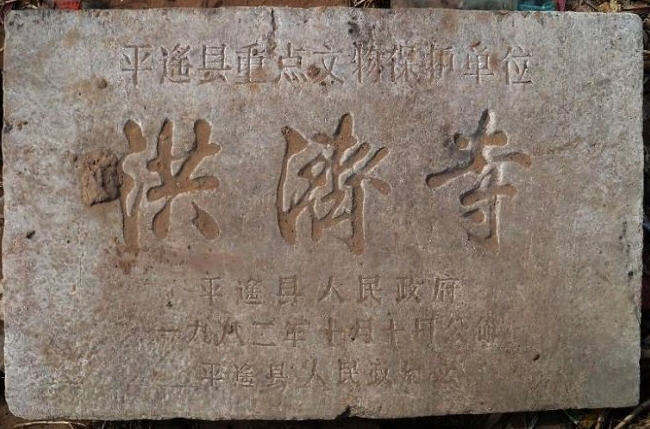 平遥县重点文物保护单位
洪濟寺
平遥县人民政府
一九八二年十月十日公布
平遥县人民政府立